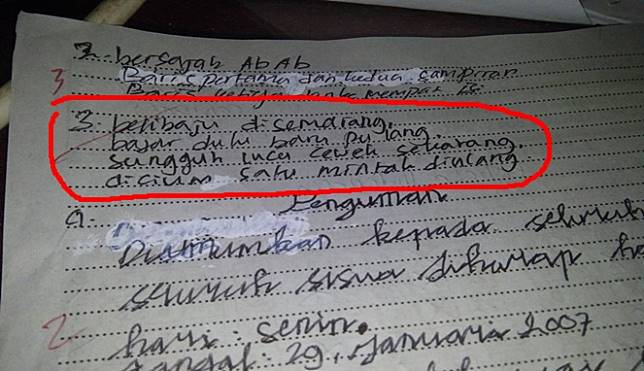 2. bersajak AbAb
3 Baris pertama dan kedua sampiran
Baris ketiga keempat isi
3. beli baju disemarang.
bayar dulu baru pulang.
sungguh lucu cewek sekarang.
dicium satu mintak diulang
a. Pengumuman
Diumumkan kepada seluruh
seluruh siswa diharap ha
2 hari : senin.
Tanggal : 29, Januari 2007